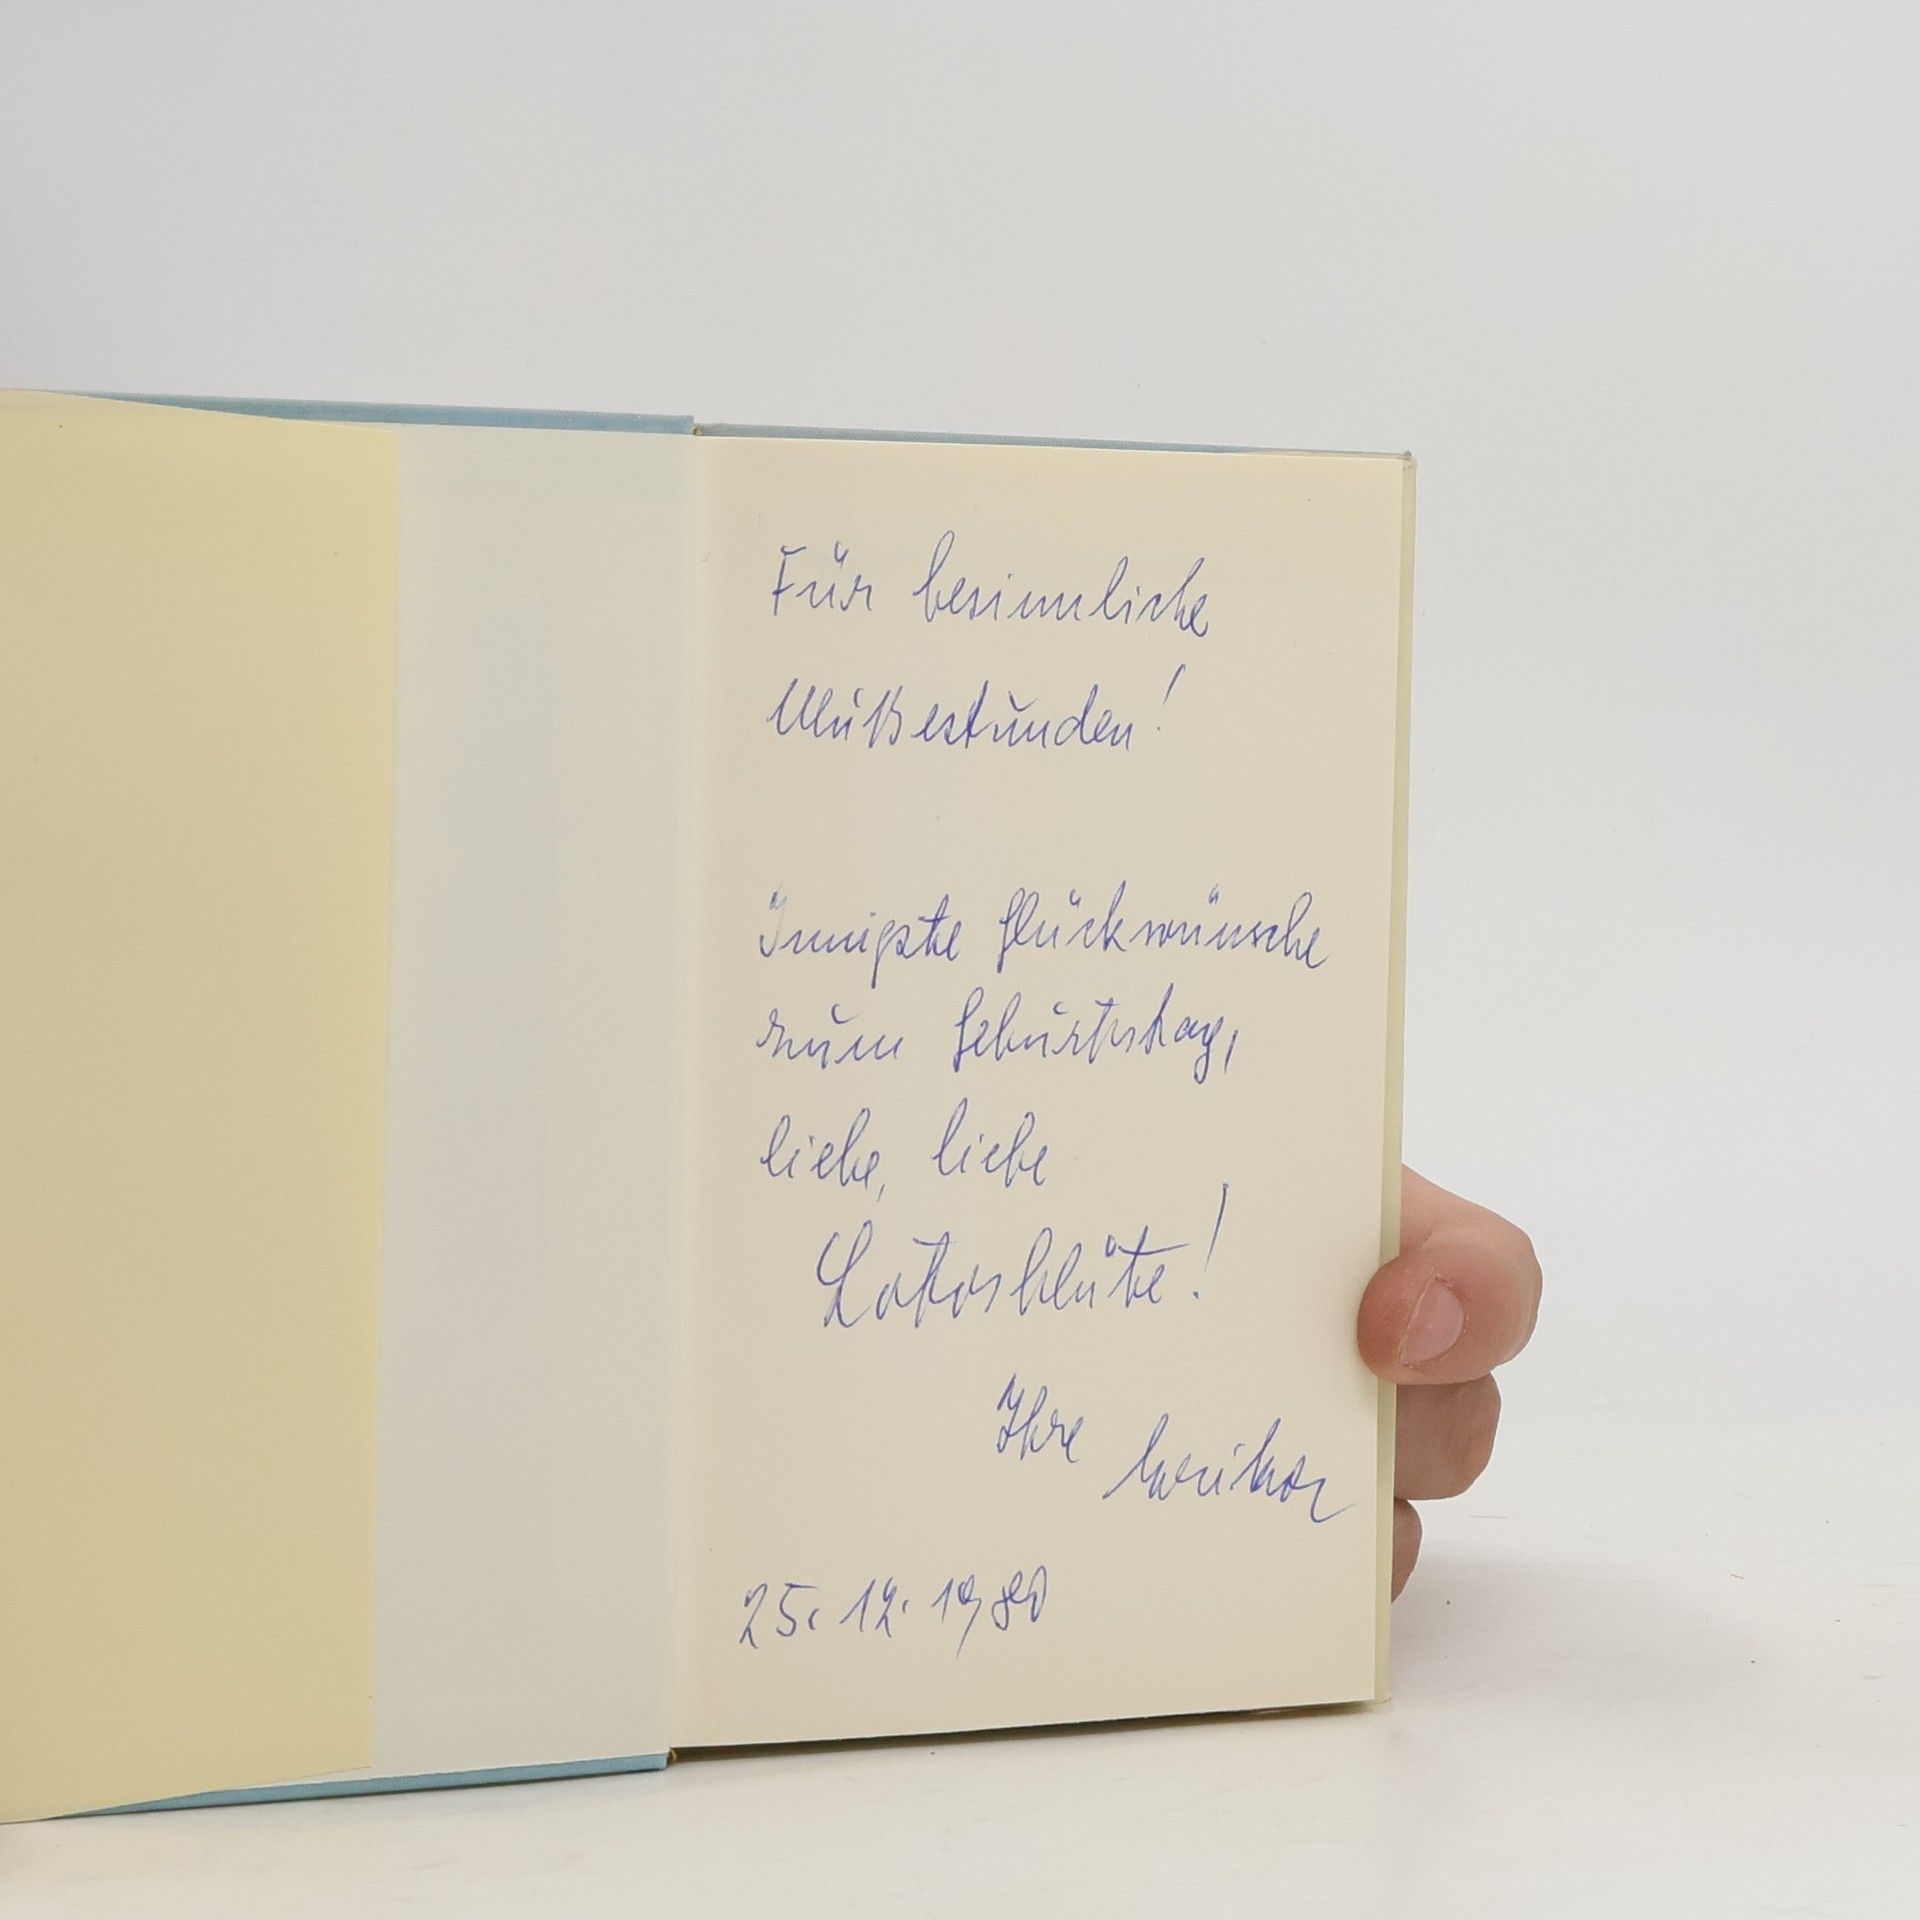 Für besinnliche
Mußestunden!
Innigste Glückwünsche
zum Geburtstag,
liebe, liebe
Lotosblüte!
Ihre
25. 12. 1980